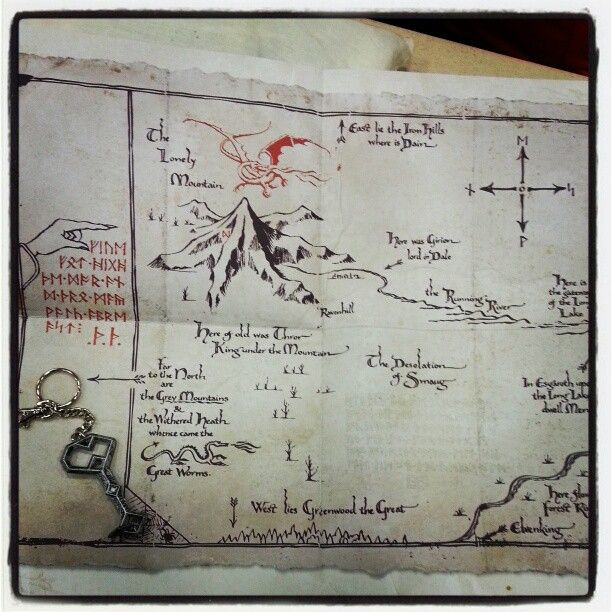 The
Lonely
Mountain
East lie the Iron Hills
where is Dain
Here was Girion
lord in Dale
the Running River
Here is
of the Long
Lake
Ravenhill
Here of old was Thror
King under the Mountain
The Desolation
of Smaug
In Esgaroth upon
the Long Lake
dwell Men
ᚠᛁᚢᛖ
ᚠᚩᛏ·ᚻᛁᚷᚻ
ᚦᛖ·ᛞᚩᚱ·ᚪᚾ
ᛞ·ᚦᚱᛖ·ᛗᚪᚣ
ᚹᚪᛚᚳ·ᚪᛒᚱᛖ
ᚪᛋᛏ·
ᚦ·ᚦ·
Far
to the North
are
the Grey Mountains
&
the Withered Heath
whence came the
Great Worms.
West lies Greenwood the Great
Here flows
Forest Ri
Elvenking